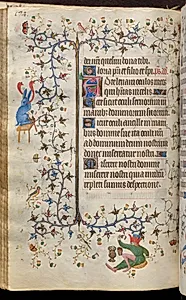 quesiui bona tibi
Gloria patri et filio et spi
te leuaui oculos meos
qui habitas in celis
Ecce sicut oculi seruorum in
manibus dominorum suorum
Sicut oculi ancille in mani
bus domine sue ita oculi nri
ad dominum deum nostrum
donec misereatur nostri
Miserere nostri domine
miserere nostri quia multum
repleti sumus despectione